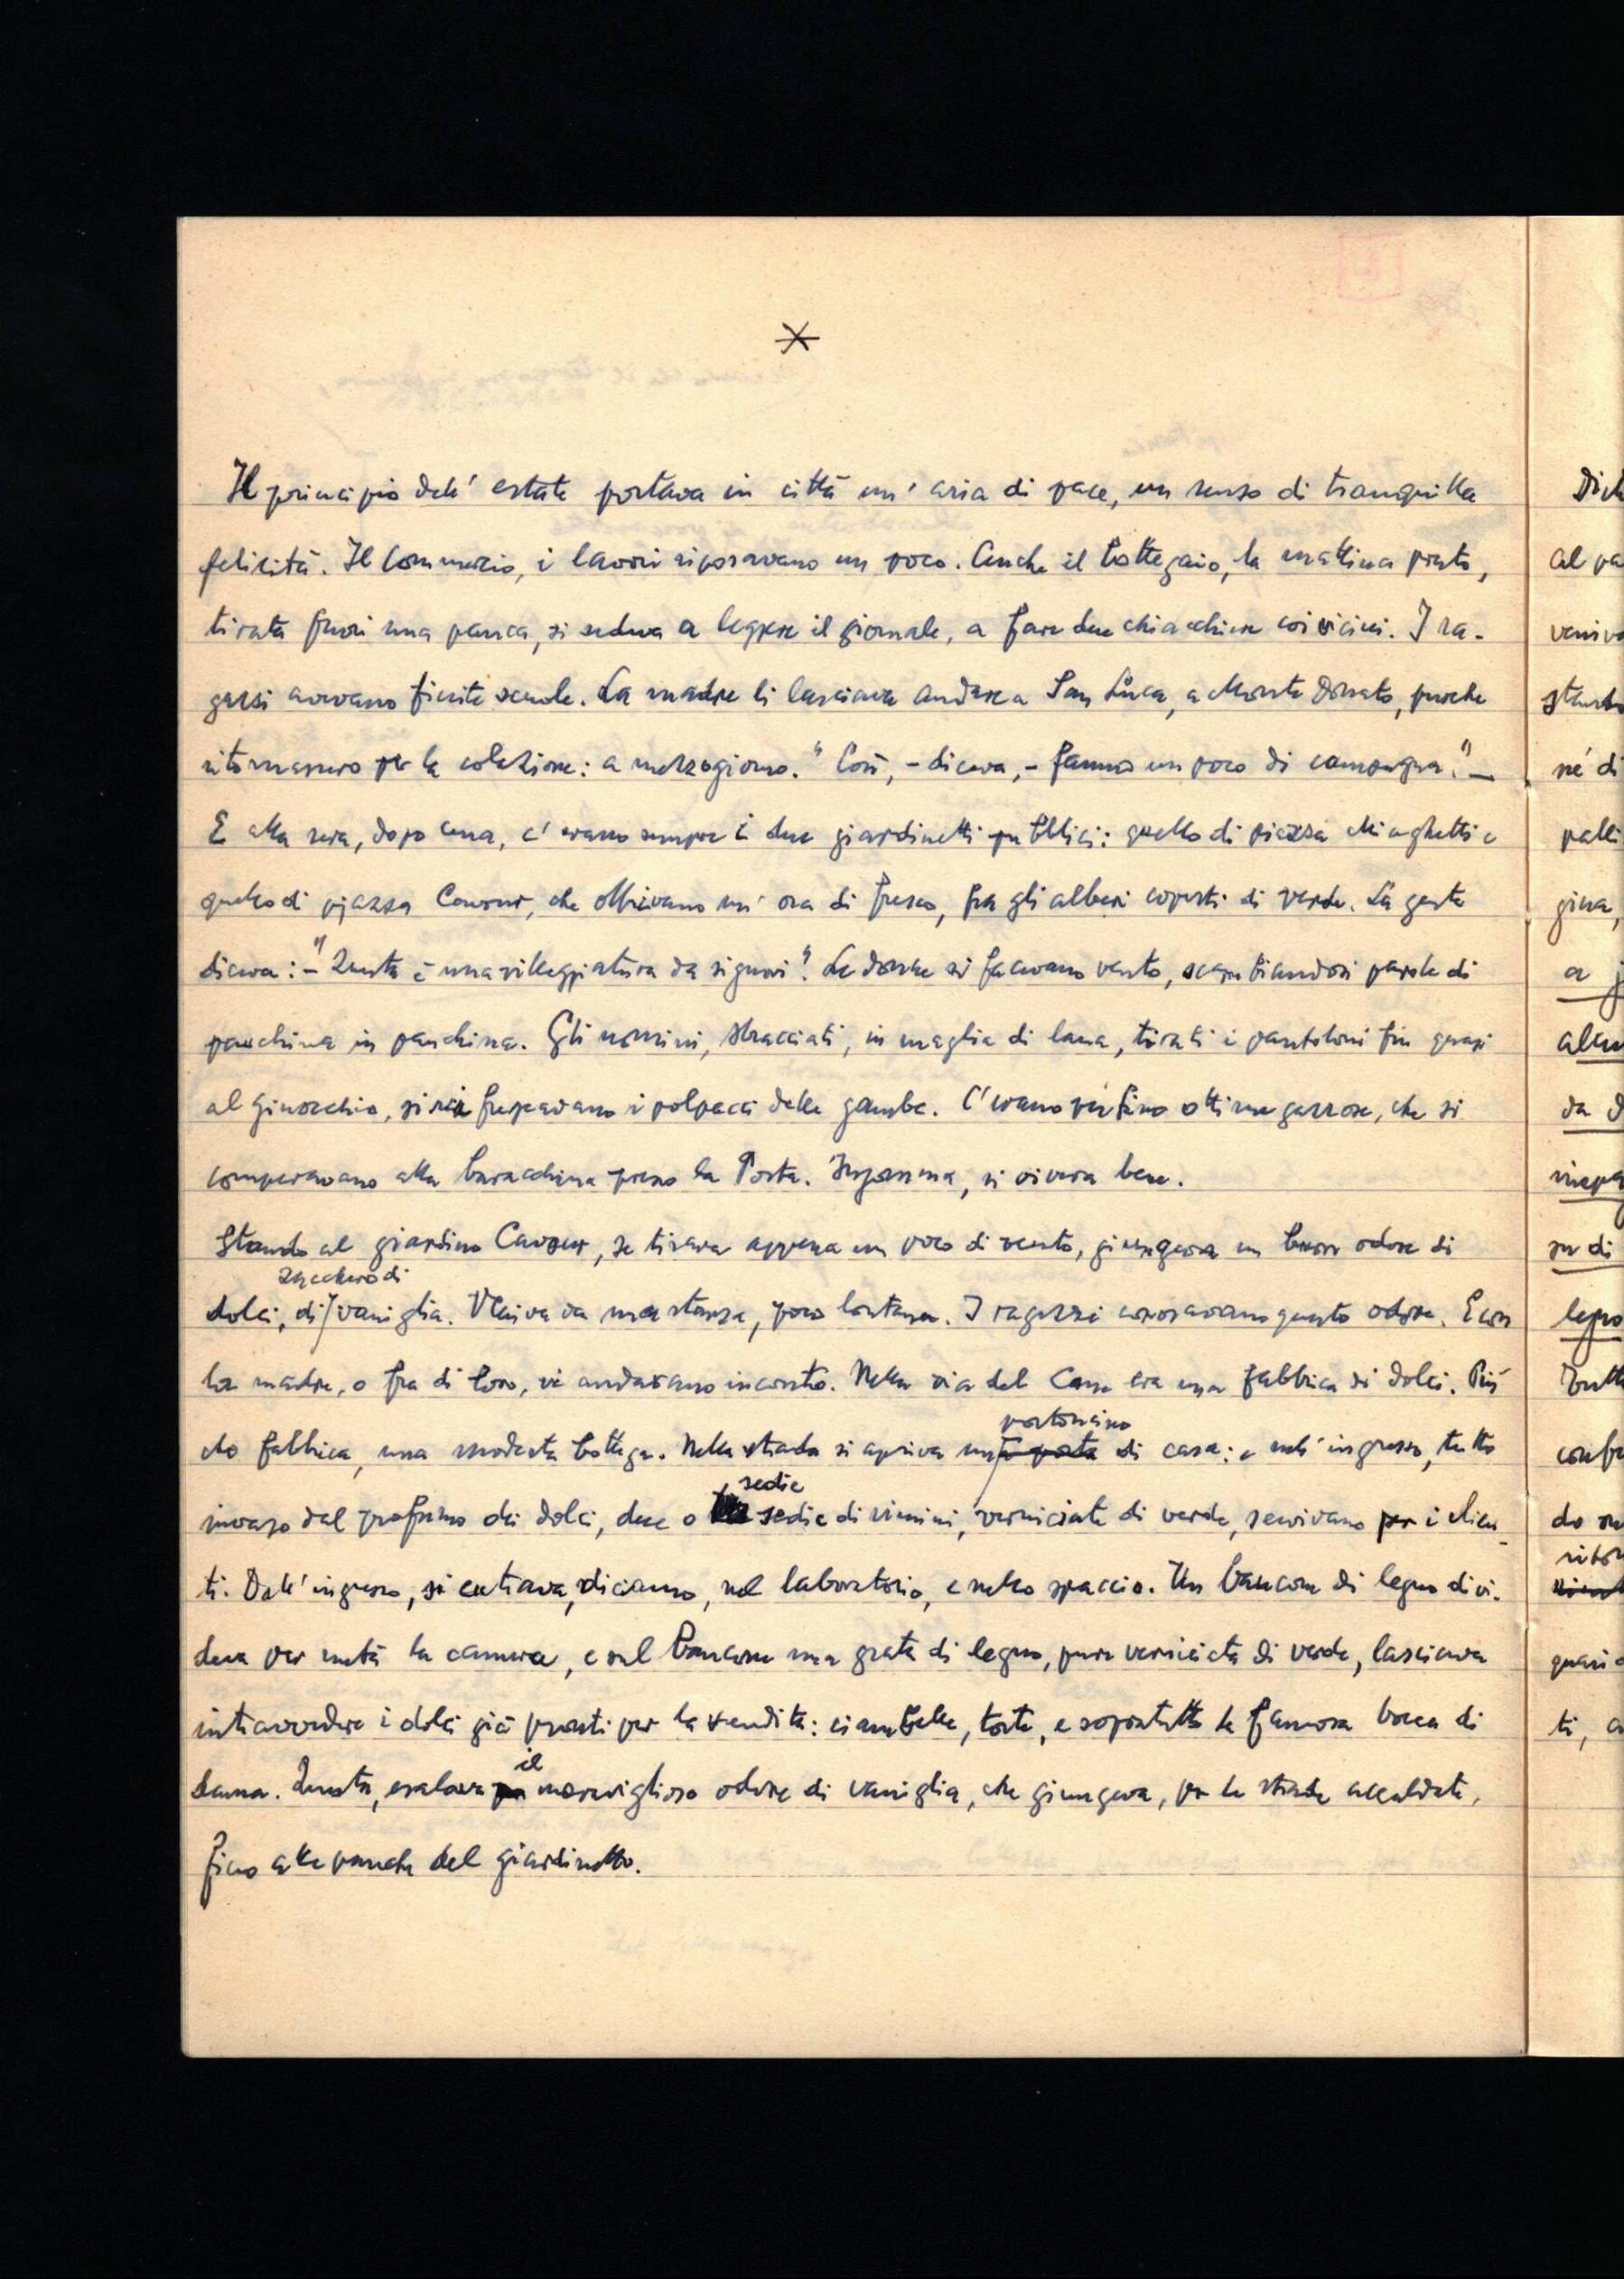 *
Il principio dell'estate portava in città un'aria di pace, un senso di tranquilla
felicità. Il commercio, i lavori riposavano un poco. Anche il bottegaio, la mattina presto,
tirata fuori una panca, si sedeva a leggere il giornale, a fare due chiacchiere coi vicini. I ra-
gazzi avevano finite scuole. La madre li lasciava andare a San Luca, a Monte Donato, purché
ritornassero per la colazione: a mezzogiorno. "Così, - diceva, - fanno un poco di campagna." -
E alla sera, dopo cena, c'erano sempre i due giardinetti pubblici: quello di piazza Minghetti e
quello di piazza Cavour, che offrivano un'ora di fresco, fra gli alberi coperti di verde. La gente
diceva: - "Questa è una villeggiatura da signori". Le donne si facevano vento, scambiandosi parole di
panchina in panchina. Gli uomini, sbracciati, in maglia di lana, tirati i pantaloni fin quasi
al ginocchio, si rinfrescavano i polpacci delle gambe. C'erano perfino ottime gazzose, che si
comperavano alla baracchina presso la Posta. Insomma, si viveva bene.
Stando al giardino Cavour, se tirava appena un poco di vento, giungeva un buon odore di
zucchero di
dolci, di vaniglia. Veniva da una stanza, poco lontana. I ragazzi conoscevano questo odore. E con
la madre, o fra di loro, vi andavano incontro. Nella via del Cane era una fabbrica di dolci. Più
che fabbrica, una modesta bottega. Nella strada si apriva una porta di casa: e nell'ingresso, tutto
portoncino
invaso dal profumo dei dolci, due o sedie di vimini, verniciate di verde, servivano per i clien-
sedie
ti. Dall'ingresso, si entrava, diciamo, nel laboratorio, e nello spaccio. Un bancone di legno divi-
deva per metà la camera, e sul bancone una grata di legno, pure verniciata di verde, lasciava
intravvedere i dolci già pronti per la vendita: ciambelle, torte, e sopratutto la famosa bocca di
dama. Questa, esalava il meraviglioso odore di vaniglia, che giungeva, per le strade accaldate,
fino alle panche del giardinetto.
Dich
al pa
veniva
né di
palli
gina,
a
da d
su di
legno
Tutt
do su
quasi
ti,